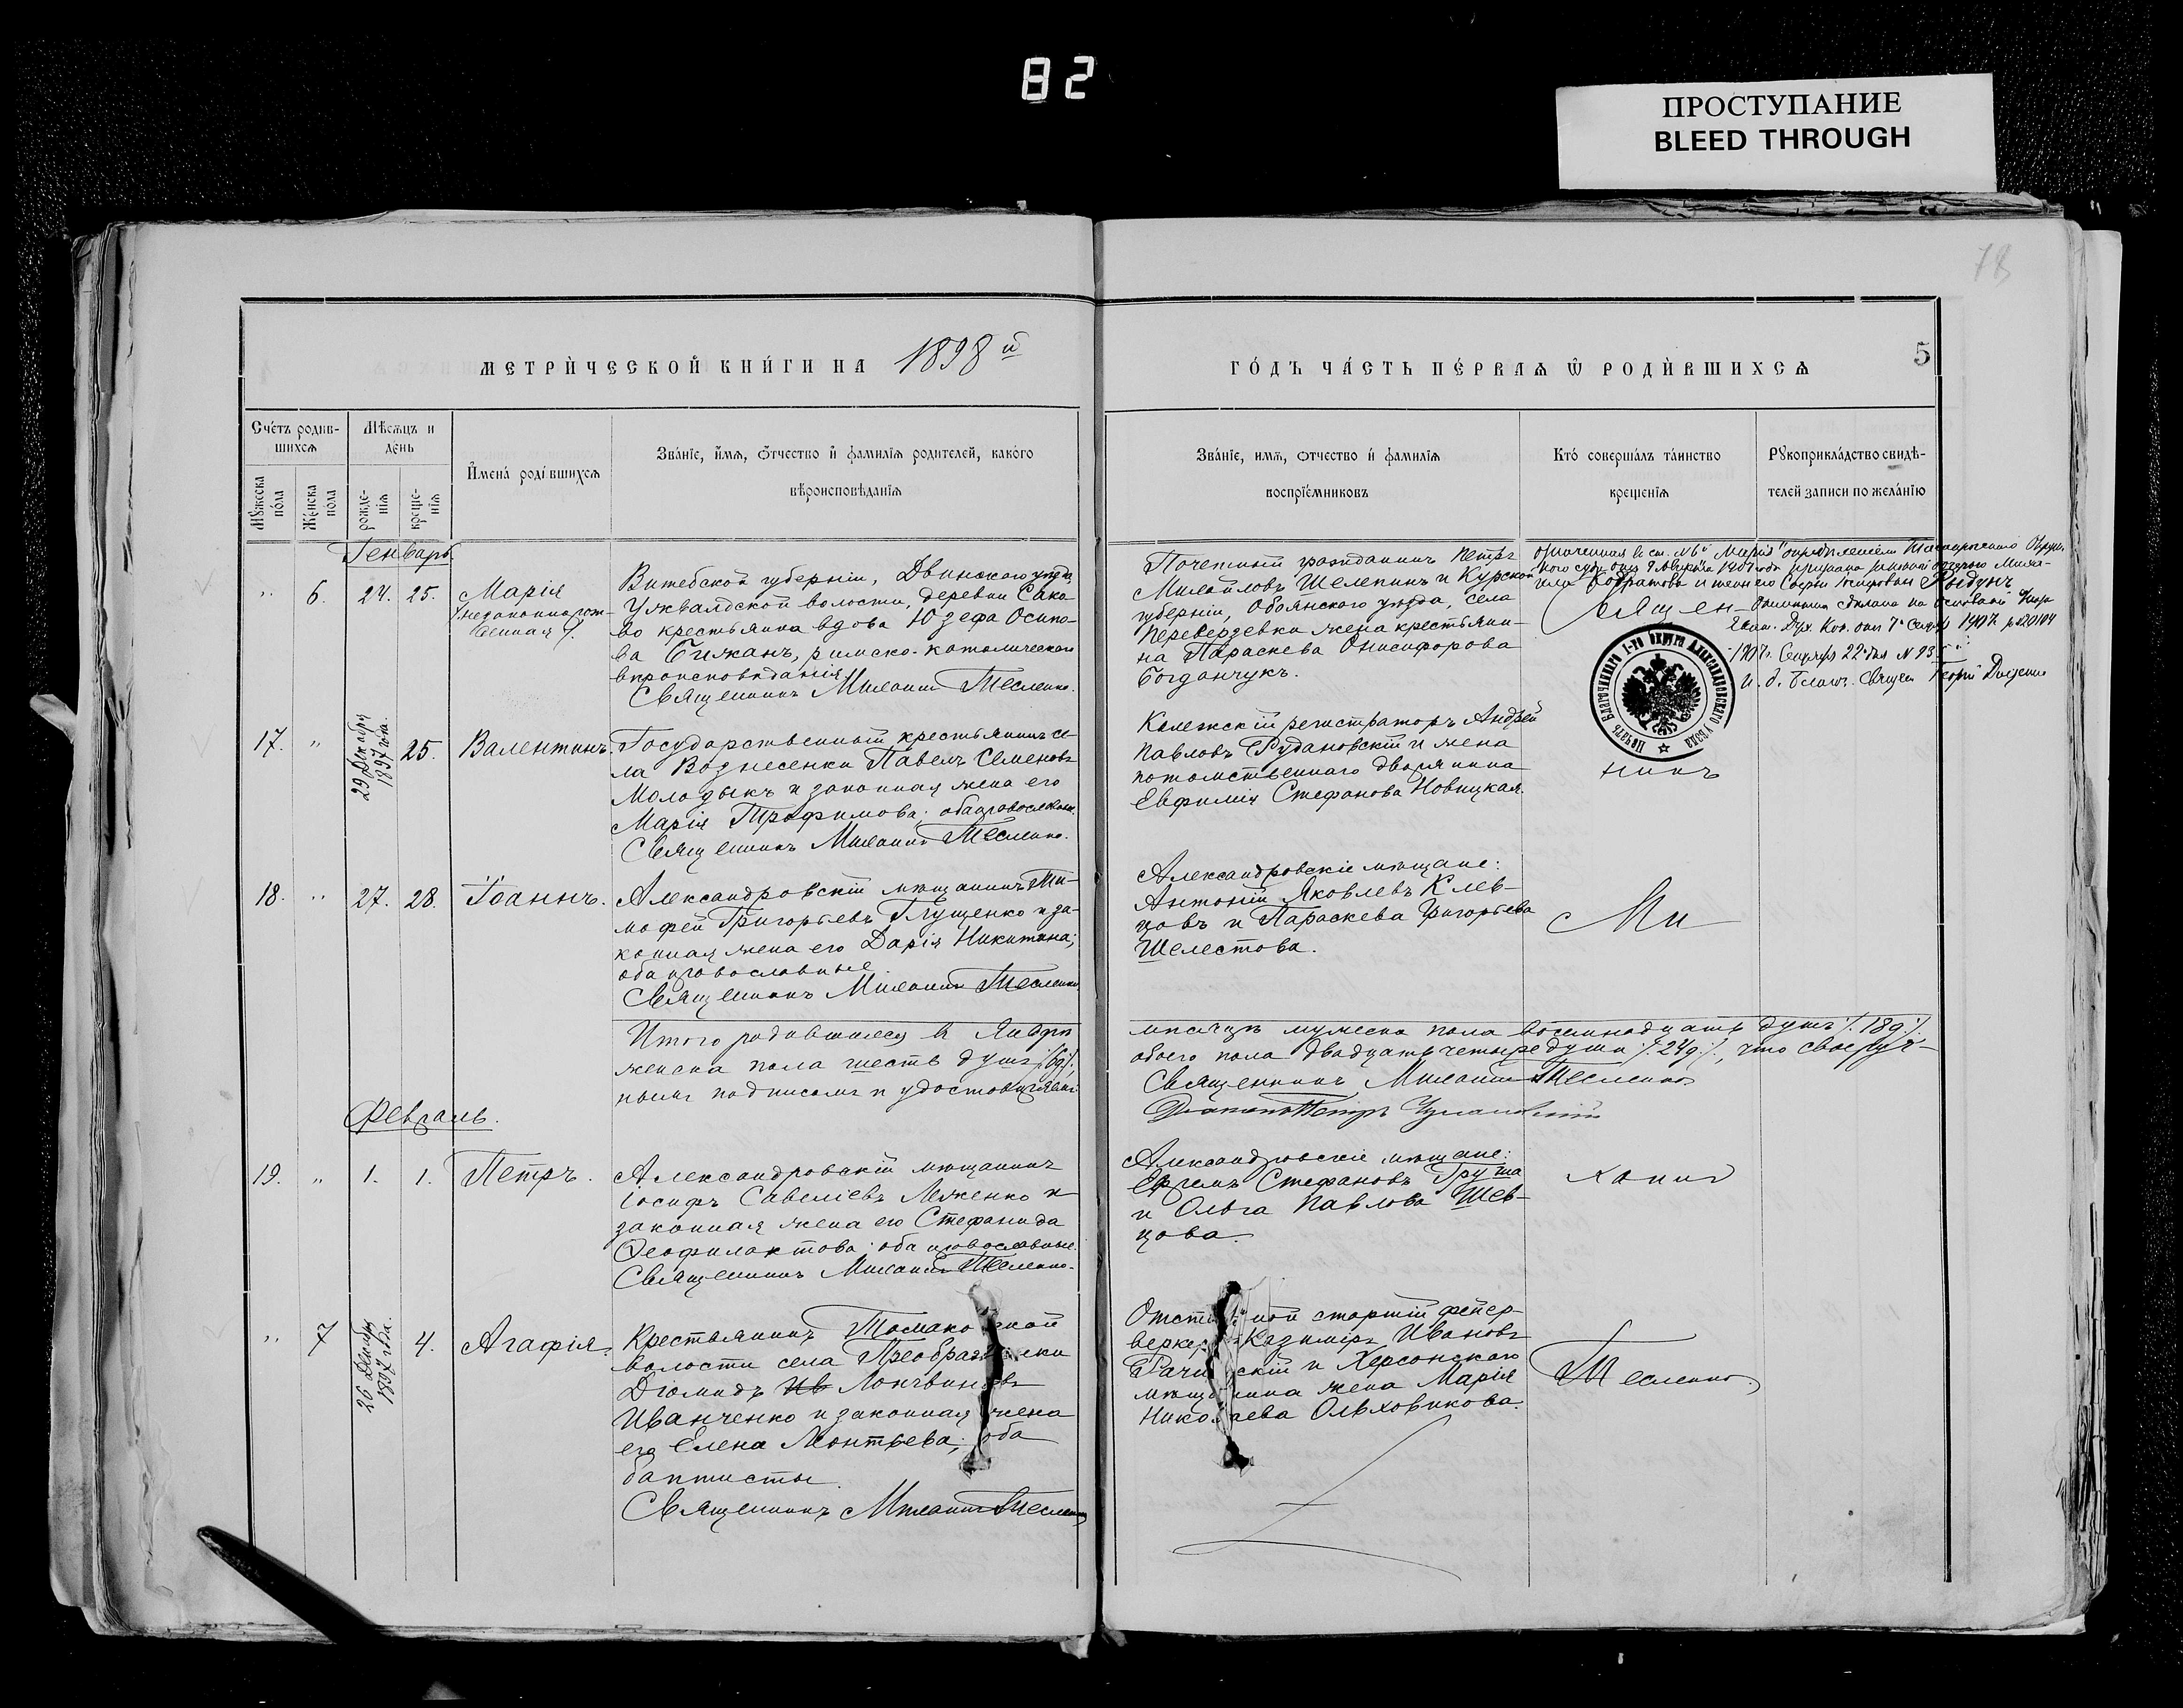 82
ПРОСТУПАНИЕ
BLEED THROUGH
78
МЕТРИ́ЧЕСКОЙ КНИ́ГИ НА 1898й
ГО́ДЪ ЧА́СТЬ ПЕ́РВАѦ Ѡ РОДИ́ВШИХСѦ
5
Сче́тъ родив-
шихсѧ
Мѣ́сѧцъ и
де́нь
Мꙋ́жеска
по́ла
Же́нска
по́ла
рожде-
нїѧ
креще-
нїѧ
И҆мена́ роди́вшихсѧ
Зва́нїе, и҆́мѧ, ѻ҆́тчество и҆ фамилїѧ родителей, како́го
вѣроисповѣ́данїѧ
Зва́нїе, имѧ, ѻтчество и҆ фамилїѧ
воспрїе́мниковъ
Кто́ соверша́лъ та́инство
креще́нїѧ
Рꙋкоприкла́дство свидѣ́-
телей записи по жела́нїю
Генварь.
" 6. 24. 25. Марія
(незаконнорож-
денная).
Витебской губерніи, Двинского уезда,
Ужвалдской волости, деревни Сака-
во крестьянка вдова Юзефа Осипо-
ва Бижанъ, римско-католическаго
вероисповеданія.
Священникъ Милантій Тесленко.
Почетный гражданинъ Петръ
Михайловъ Шелепинъ и Курской
губерніи, Обоянского уезда, села
Переверзевки жена крестьяни-
на Параскева Онисифорова
Богданчукъ.
означенная в ст. №6й "Марія" определеніем Таганрогского Окруж-
Свящ ен-
1907г. Сентября 22 дня №
И. д. Благоч. Священ. Георгій
Печать Благочиннаго 1-го округа Александровскаго уѣзда
17. " 29 Декабря
1897 года. 25. Валентинъ.
Государственный крестьянинъ се-
ла Вознесенки Павелъ Семеновъ
Молодыкъ и законная жена его
Марія Трофимова; оба православн.
Священникъ Милантій Тесленко.
Колежскій регистраторъ Андрей
Павловъ Рудановскій и жена
потомственного дворянина
Евфимія Стефанова Новицкая.
никъ
18. " 27. 28. Іоаннъ.
Александровскій мѣщанинъ Ти-
мофей Григорьевъ Глущенко и за-
конная жена его Дарія Никитина;
оба православные.
Священникъ Милантій Тесленко
Александровскіе мѣщане:
Антоній Яковлевъ Клев-
цовъ и Параскева Григорьева
Шелестова.
Ми
Итого родившихся въ Январѣ
месяцѣ мужеска пола восемнадцать душъ /:18д:/.
женска пола шесть душъ /:6д:/,
обоего пола двадцать четыре души /:24д:/, что своеруч-
ными подписомъ и удостовѣряемъ
Священникъ Милантій Тесленко
Діаконъ Петръ
Февраль.
19. " 1. 1. Петръ.
Александровскій мѣщанинъ
Іосифъ Савеліевъ Леженко и
законная жена его Стефанида
Ѳеофилактова; оба православные.
Священникъ Милантій Тесленко.
Александровскіе мѣщане:
Ефремъ Стефановъ Груша
и Ольга Павлова Шев-
цова.
лантій
" 7 26 Декабря
1897 года. 4. Агафія.
Крестьянинъ Томаковской
волости села Преображенки
Діомидъ Ив Логвиновъ
Иванченко и законная жена
его Елена Леонтьева; оба
баптисты.
Священникъ Милантій Тесленко
Отставной старшій фейер-
веркеръ Казимиръ Ивановъ
Рачинскій и Херсонскаго
мѣщанина жена Марія
Николаева Ольховикова.
Тесленко